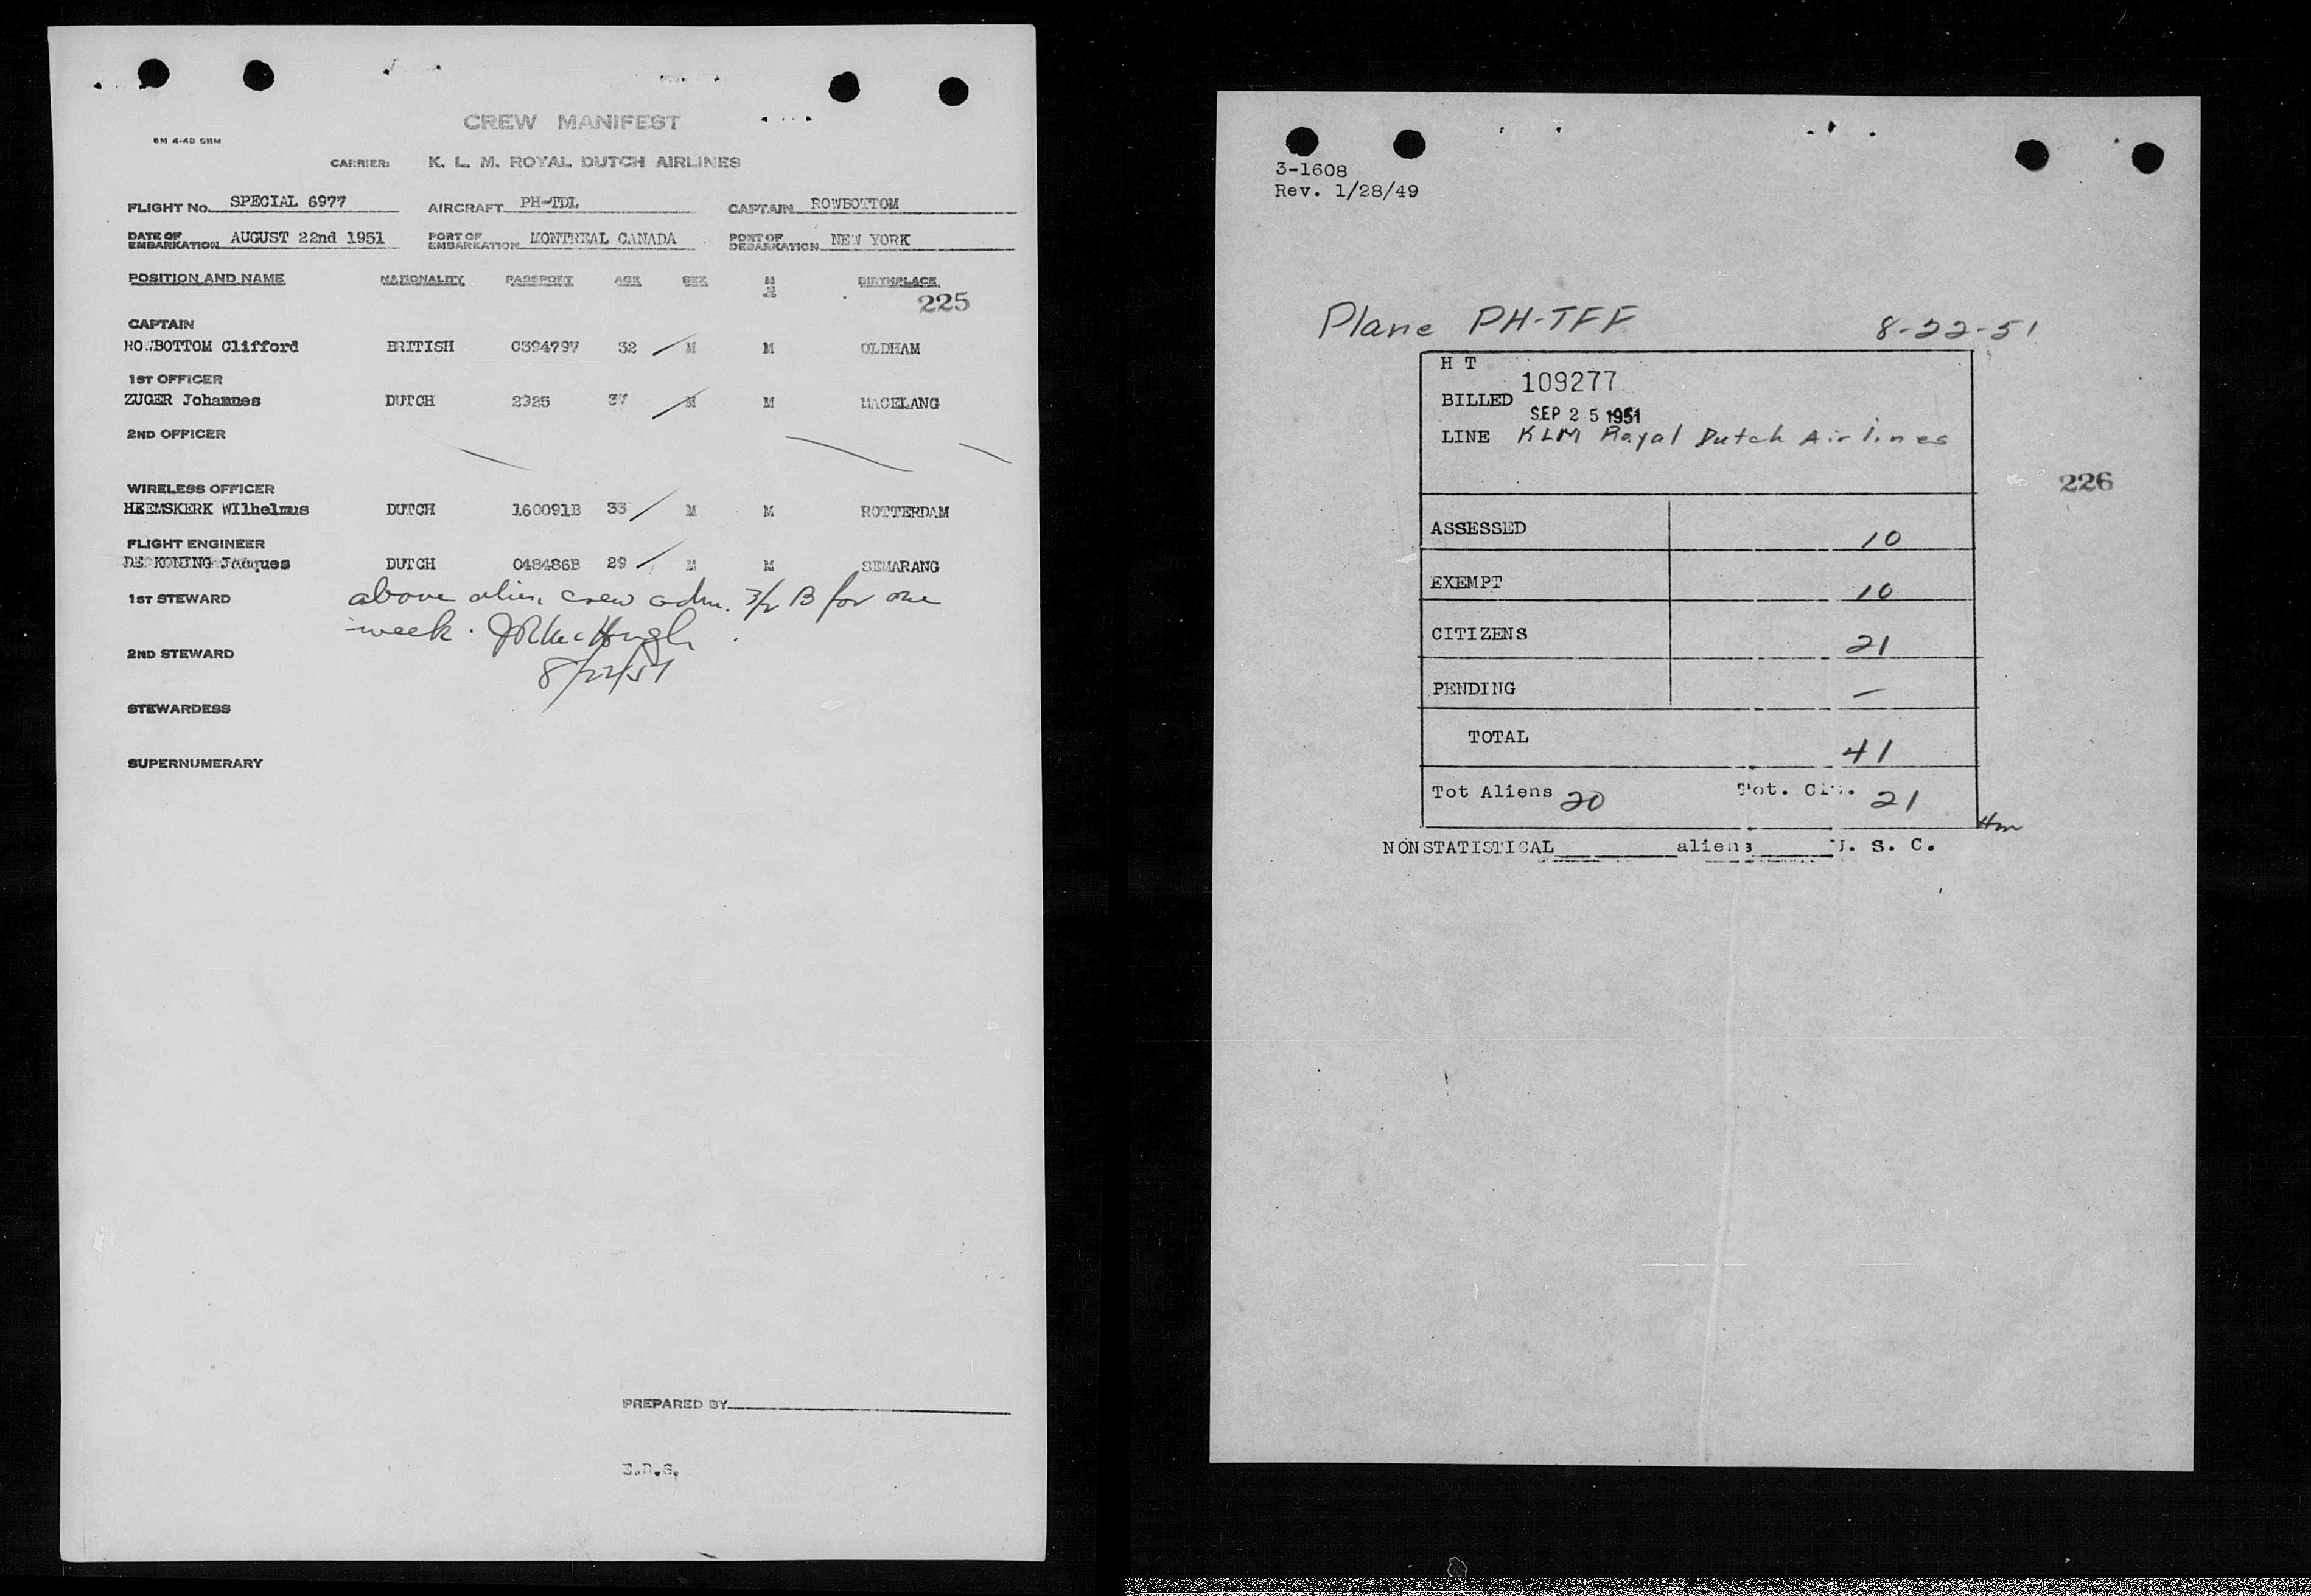 CREW MANIFEST
CARRIER: K. L. M. ROYAL DUTCH AIRLINES
FLIGHT No. SPECIAL 6977 AIRCRAFT PH-TDL CAPTAIN ROWBOTTOM
DATE OF EMBARKATION AUGUST 22nd 1951 PORT OF EMBARKATION MONTREAL CANADA PORT OF DEBARKATION NEW YORK
POSITION AND NAME NATIONALITY PASSPORT AGE SEX BIRTHPLACE
225
CAPTAIN
ROWBOTTOM Clifford BRITISH C394797 32 M M OLDHAM
1ST OFFICER
ZUGER Johannes DUTCH 2925 37 M M MAGELANG
2ND OFFICER
WIRELESS OFFICER
HEEMSKERK WIlhelmus DUTCH 160091B 33 M M ROTTERDAM
FLIGHT ENGINEER
DE KONING Jacques DUTCH 048486B 29 M M SEMARANG
1ST STEWARD
above alien crew adm. 3/2 B for one
week. McHugh
2ND STEWARD
8/22/51
STEWARDESS
SUPERNUMERARY
PREPARED BY
E.D.S.
3-1608
Rev. 1/28/49
Plane PH-TFF 8-22-51
H T
109277
BILLED
SEP 25 1951
LINE KLM Royal Dutch Airlines
226
ASSESSED 10
EXEMPT 10
CITIZENS 21
PENDING —
TOTAL 41
Tot Aliens 20 Tot. Cit. 21
NONSTATISTICAL aliens U. S. C.